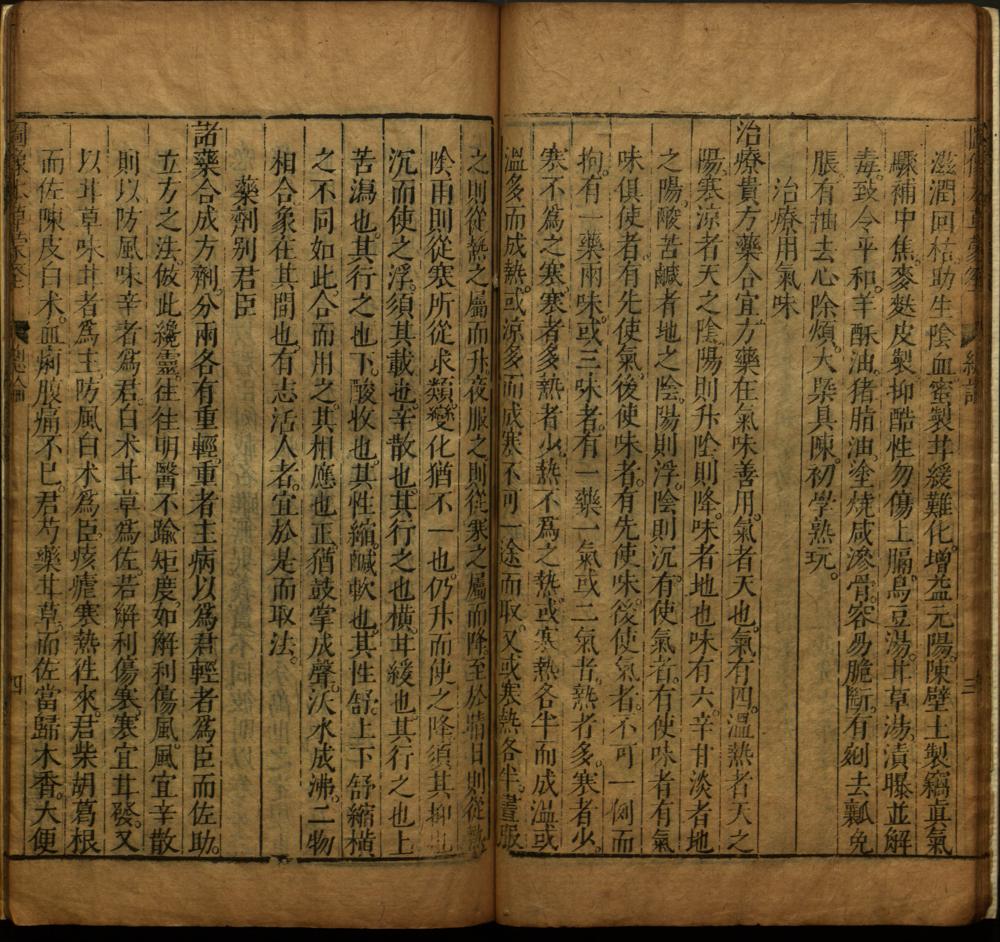 滋潤回枯。助生陰血。蜜製甘緩難化。增益元陽。陳壁土製竊真氣
驟補中焦。麥麩皮製抑酷性勿傷上膈。烏豆湯。甘草湯。漬曝並解
毒。致令平和。羊酥油。猪脂油。塗燒咸滲骨。容易脆斷。有剜去瓤免
脹。有抽去心除煩。大槩具陳。初學熟玩。
治療用氣味
治療貴方藥合宜。方藥在氣味善用。氣者天也。氣有四。溫熱者天之
陽。寒涼者天之陰。陽則升。陰則降。味者地也。味有六。辛甘淡者地
之陽。酸苦鹹者地之陰。陽則浮。陰則沉。有使氣者。有使味者。有氣
味俱使者。有先使氣後使味者。有先使味。後使氣者。不可一例而
拘。有一藥兩味。或三味者。有一藥一氣。或二氣者。熱者多。寒者少。
寒不為之寒。寒者多。熱者少。熱不為之熱。或寒熱各半而成溫。或
溫多而成熱。或涼多而成寒。不可一途而取。又或寒熱各半。晝服
之則從熱之屬而升。夜服之則從寒之屬而降。至於晴日則從熱
陰雨則從寒。所從求類。變化猶不一也。仍升而使之降。須其抑也
沉而使之浮。須其載也。辛散也。其行之也橫。甘緩也。其行之也上
苦瀉也。其行之也下。酸收也。其性縮。鹹軟也。其性舒。上下舒縮橫
之不同如此。合而用之。其相應也。正猶鼓掌成聲。沃水成沸。二物
相合。象在其間也。有志活人者。宜於是而取法。
藥劑別君臣
諸藥合成方劑。分兩各有重輕。重者主病以為君。輕者為臣而佐助。
立方之法。倣此纔靈。往往明醫不踰矩度。如解利傷風。風宜辛散
則以防風味辛者為君。白术甘草為佐。若解利傷寒。寒宜甘發。又
以甘草味甘者為主。防風白术為臣。痎瘧寒熱往來。君柴胡葛根
而佐陳皮白术。血痢腹痛不已。君芍藥甘草。而佐當歸木香。大便
總論
四
三